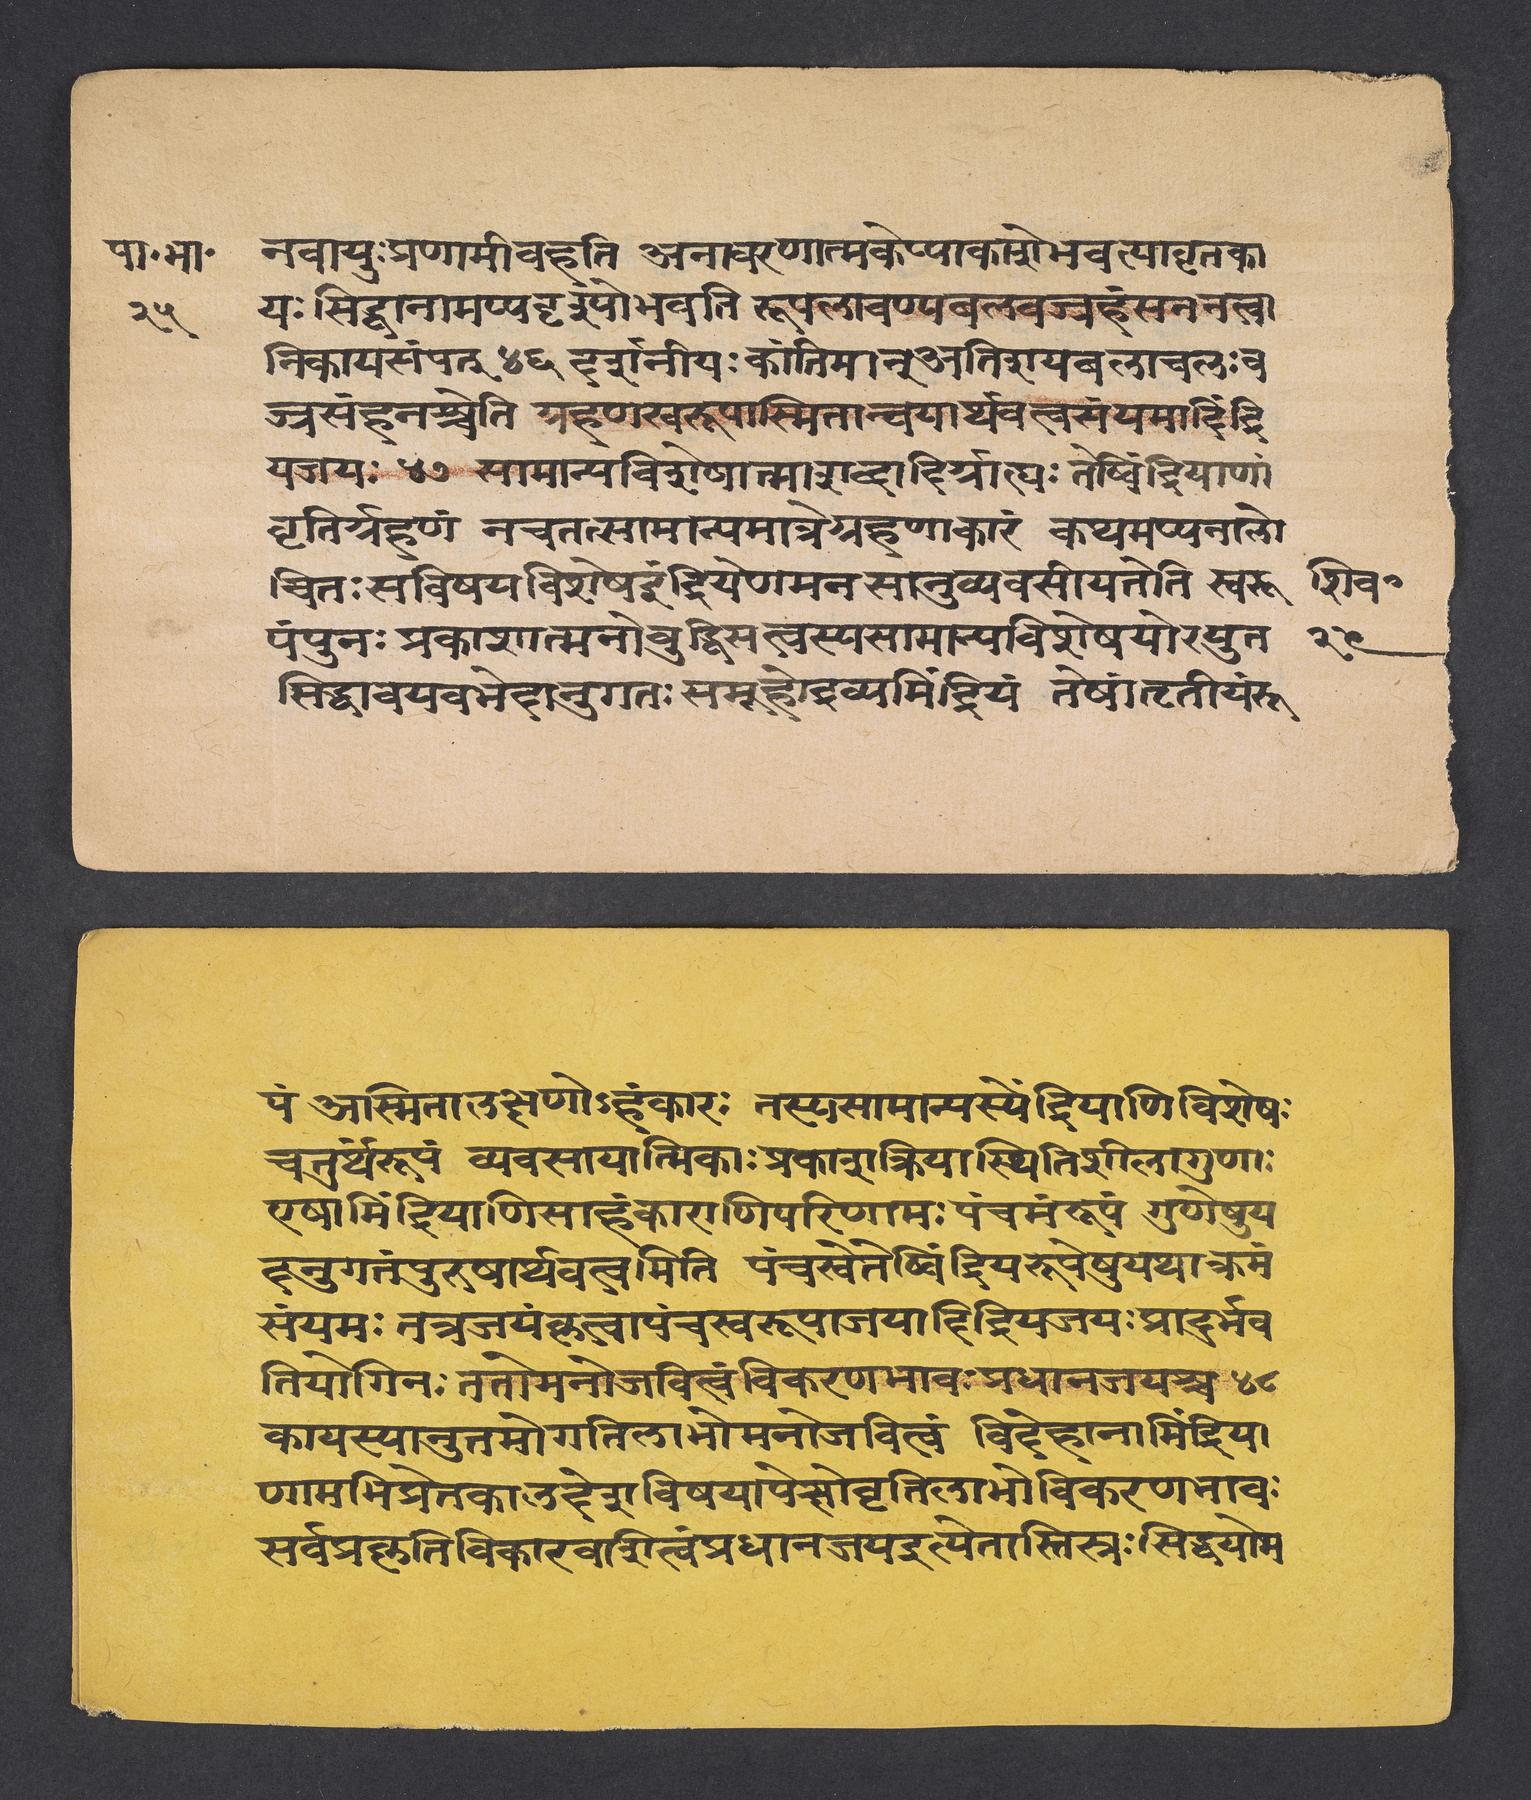 पा॰भा॰ नवायुःप्रणामीवहति अनावरणात्मकेप्याकाशेभवत्यावृतका
२५ यःसिद्धानामप्यदृश्योभवति रूपलावण्यबलवज्रहंसननत्वा
निकायसंपत् ४६ दर्शनीयःकांतिमान्अतिशयबलाचलःव
ज्रसंहनश्चेति ग्रहणस्वरूपास्मितान्वयार्थवत्वसंयमादिंद्रि
यजयः ४७ सामान्यविशेषात्माशब्दादिर्ग्राह्यः तेष्विंद्रियाणां
वृतिर्ग्रहणं नचतत्सामान्यमात्रेग्रहणाकारं कथमप्यनालो
चितःसविषयविशेषइंद्रियेणमनसानुव्यवसीयतेति स्वरू शिव॰
पंपुनःप्रकाशात्मनोबुद्धिसत्वस्यसामान्यविशेषयोरयुत २५
सिद्धावयवभेदानुगतःसमूहोद्रव्यमिंद्रियं तेषांतृतीयंरू
पं अास्मितालक्षणोऽहंकारः तस्यसामान्यस्येंद्रियाणिविशेषः
चतुर्थंरूपं व्यवसायात्मिकाःप्रकाशक्रियास्थितिशीलागुणाः
एषामिंद्रियाणिसाहंकाराणिपरिणामःपंचमंरूपं गुणेषुय
दनुगतंपुरुषार्थवत्वमिति पंचस्वेतेष्विंद्रियरूपेषुयथाक्रमं
संयमः तत्रजयंकृत्वापंचस्वरूपाजयादिंद्रियजयःप्रादुर्भव
तियोगिनःततोमनोजवित्वंविकरणभावःप्रधानजयश्च ४८
कायस्यानुतमोगतिलाभोमनोजवित्वं विदेहानामिंद्रिया
णामभिप्रेतकालदेशविषयापेक्षोवृतिलाभोविकरणभावः
सर्वप्रकृतिविकारवशित्वंप्रधानजयइत्येतास्तिस्रःसिद्धयोम